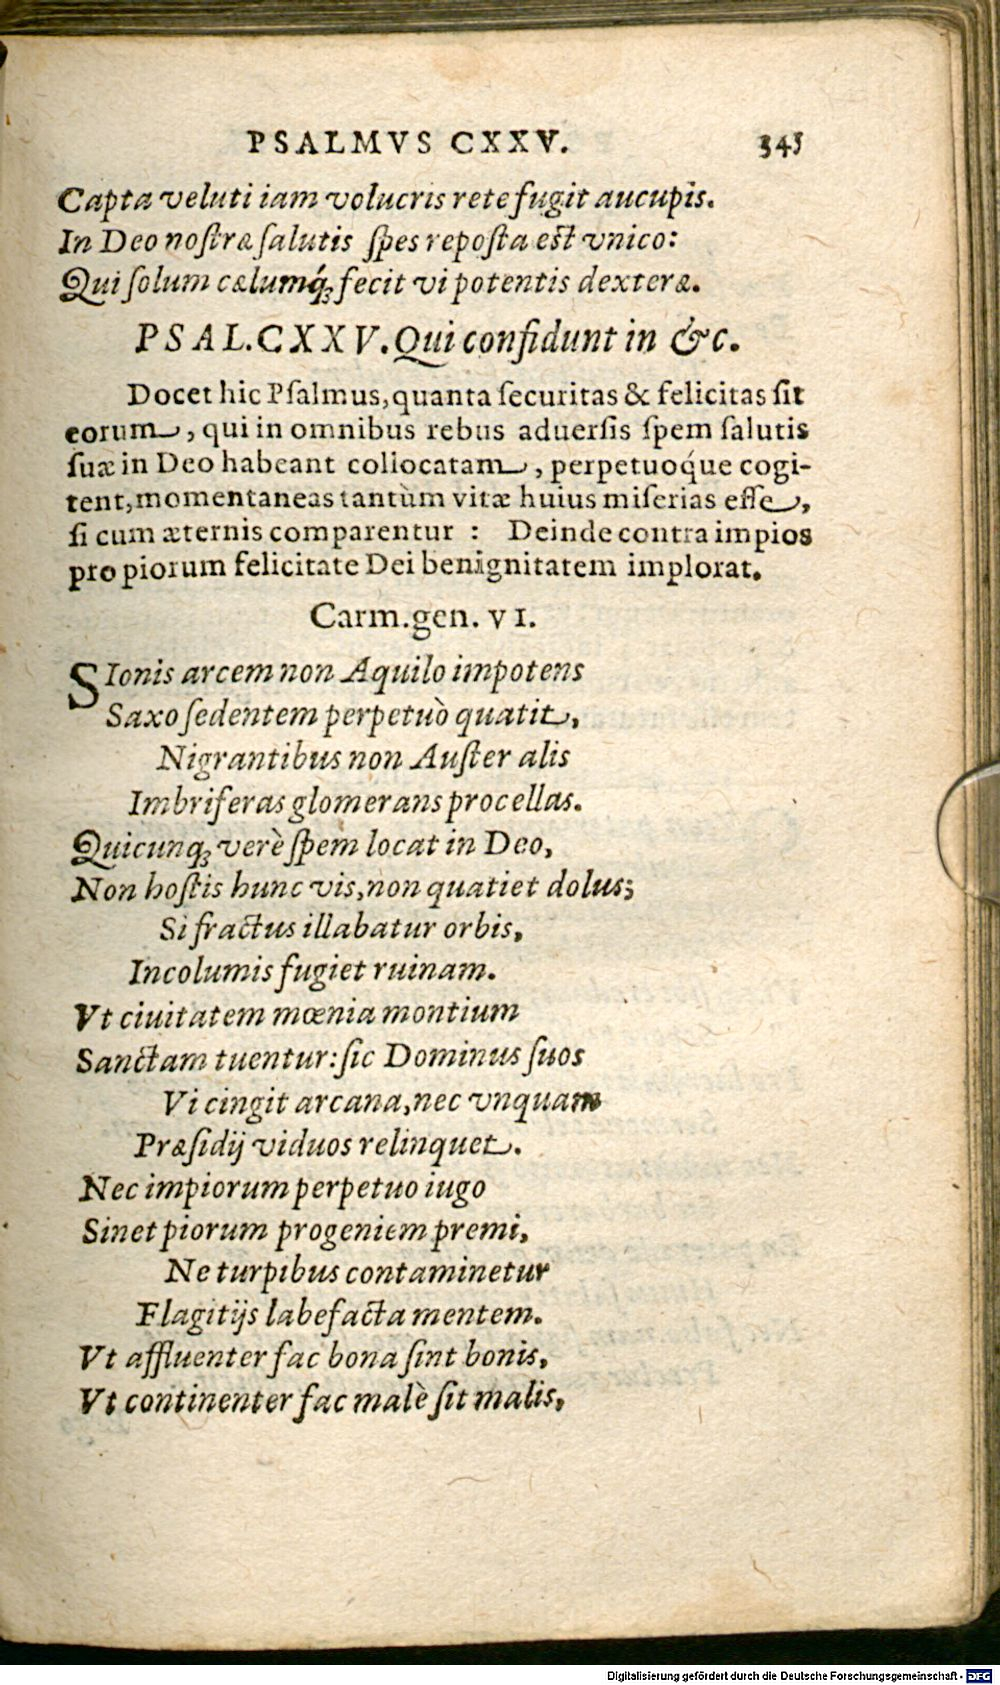 PSALMVS CXXV. 345
Capta veluti iam volucris rete fugit aucupis.
In Deo nostræ salutis spes reposta est vnico:
Qui solum cælumq́; fecit vi potentis dexteræ.
PSAL. CXXV. Qui confidunt in &c.
Docet hic Psalmus, quanta securitas & felicitas sit
eorum, qui in omnibus rebus aduersis spem salutis
suæ in Deo habeant collocatam, perpetuoq́ue cogi-
tent, momentaneas tantùm vitæ huius miserias esse,
si cum æternis comparentur: Deinde contra impios
pro piorum felicitate Dei benignitatem implorat.
Carm. gen. VI.
SIonis arcem non Aquilo impotens
Saxo sedentem perpetuò quatit,
Nigrantibus non Auster alis
Imbriferas glomerans procellas.
Quicunq; verè spem locat in Deo,
Non hostis hunc vis, non quatiet dolus;
Si fractus illabatur orbis,
Incolumis fugiet ruinam.
Vt ciuitatem mœnia montium
Sanctam tuentur: sic Dominus suos
Vi cingit arcana, nec vnquam
Præsidij viduos relinquet.
Nec impiorum perpetuo iugo
Sinet piorum progeniem premi,
Ne turpibus contaminetur
Flagitijs labefacta mentem.
Vt affluenter fac bona sint bonis,
Vt continenter fac malè sit malis,
Digitalisierung gefördert durch die Deutsche Forschungsgemeinschaft - DFG